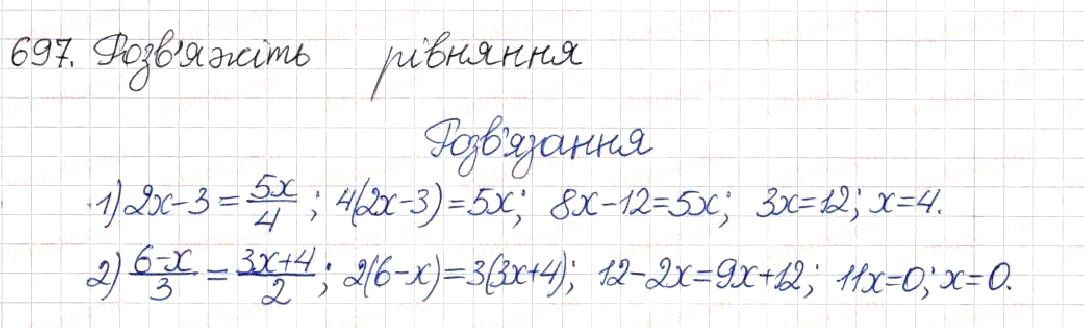 697. Розв'яжіть рівняння
Розв'язання
1) 2x-3 = 5x/4; 4(2x-3)=5x; 8x-12=5x; 3x=12; x=4.
2) 6-x/3 = 3x+4/2; 2(6-x)=3(3x+4); 12-2x=9x+12; 11x=0; x=0.